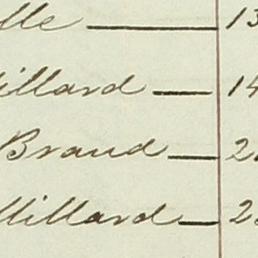 lle — 13
illard — 14
Brand — 2
Millard — 2